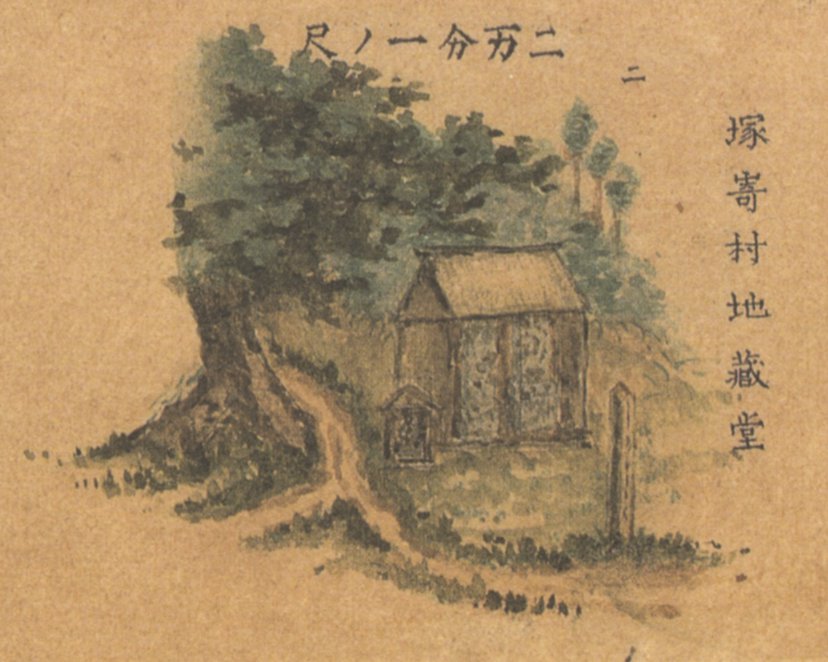 二万分一ノ尺
二
塚嵜村地藏堂